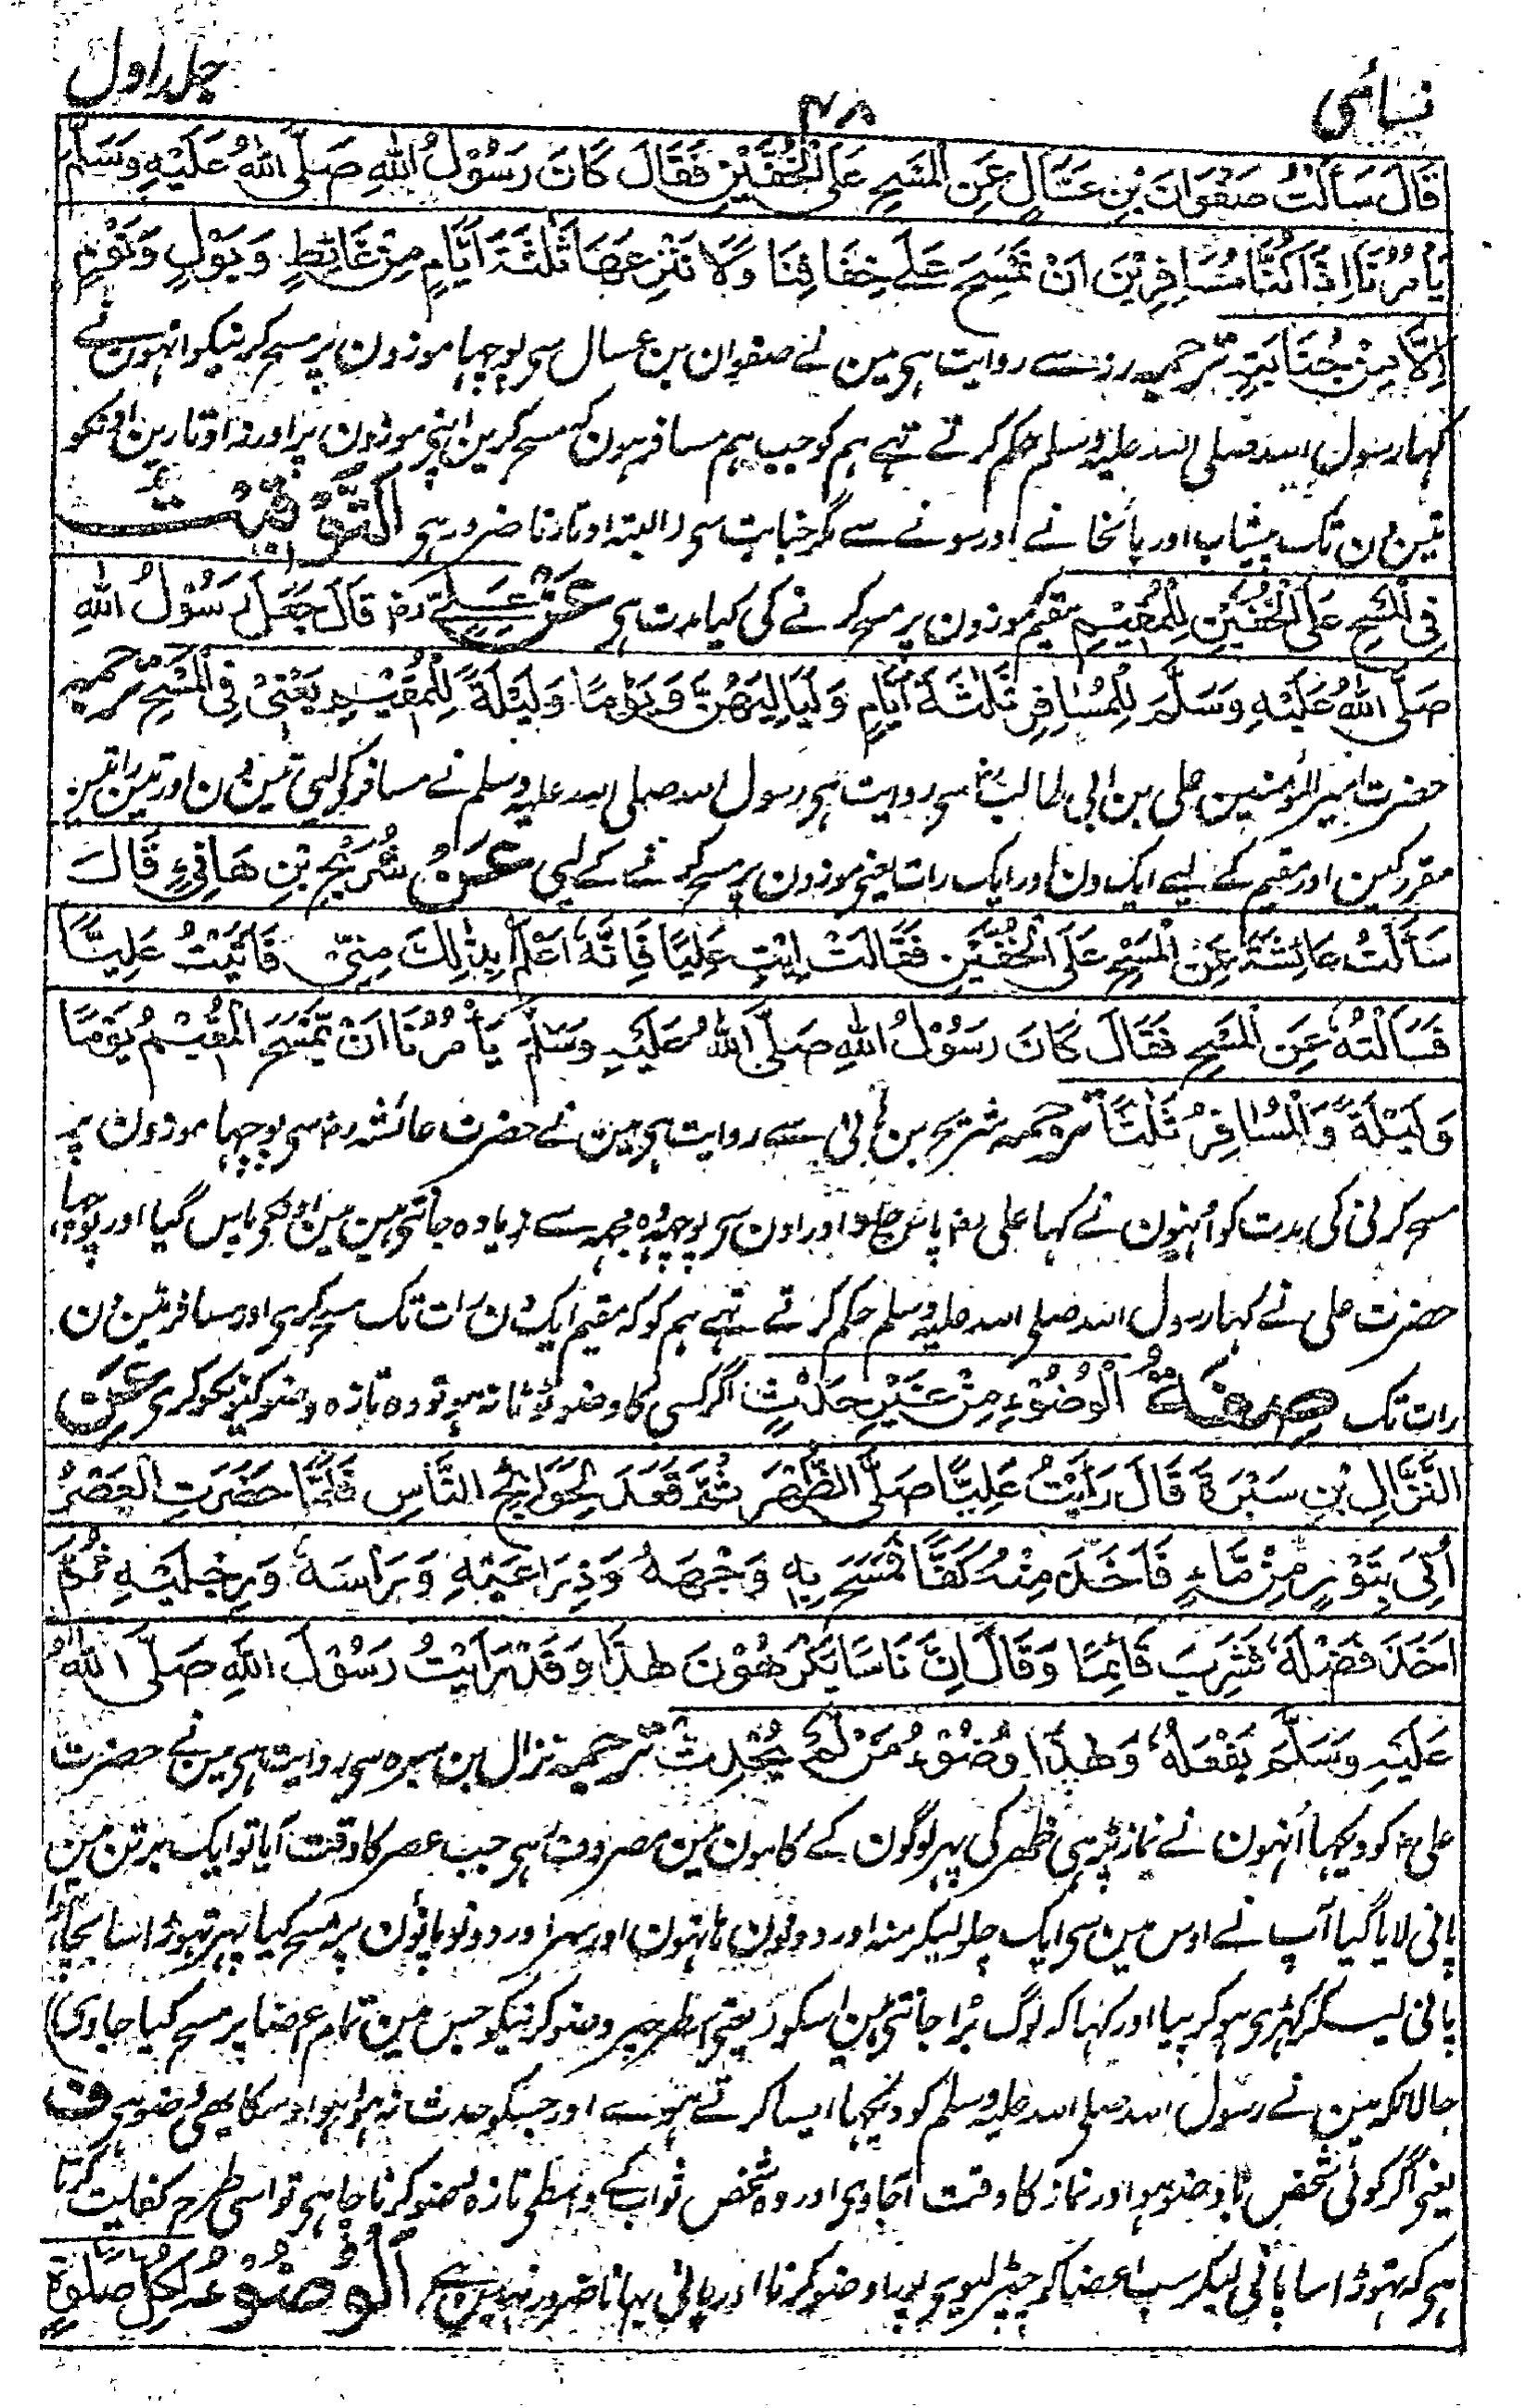 نسائی ۴۸ جلد اول
قَالَ سَأَلْتُ صَفْوَانَ بْنِ عَسَّالٍ عَنِ الْمَسْحِ عَلَى الْخُفَّيْنِ فَقَالَ كَانَ رَسُوْلُ اللّٰهِ صَلَّى اللّٰهُ عَلَيْهِ وَسَلَّمَ
يَأْمُرُنَا اِذَا كُنَّا مُسَافِرِيْنَ اَنْ نَمْسَحَ عَلٰى خِفَافِنَا وَلَا نَنْزِعَهَا ثَلٰثَةَ اَيَّامٍ مِنْ غَائِطٍ وَبَوْلٍ وَنَوْمٍ
اِلَّا مِنْ جَنَابَةٍ ترجمہ زر سے روایت ہی مین نے صفوان بن عسال سی پوچہا موزون پر مسح کرنیکو انہون نے
کہا رسول اللہ صلی اللہ علیہ وسلم حکم کرتے تہے ہم کو جب ہم مسافر ہون کہ مسح کرین اپنی موزون پر اور نہ اوتارین اونکو
تین دن تک پیشاب اور پائخانے اور سونے سے مگر جنابت سی (البتہ اوتارنا ضرور ہی اَلتَّوْقِيْتُ
فِي الْمَسْحِ عَلَى الْخُفَّيْنِ لِلْمُقِيْمِ مقیم موزون پر مسح کرنے کی کیا مدت ہی عَنْ عَلِيٍّ رَضِ قَالَ جَعَلَ رَسُوْلُ اللّٰهِ
صَلَّى اللّٰهُ عَلَيْهِ وَسَلَّمَ لِلْمُسَافِرِ ثَلٰثَةَ اَيَّامٍ وَلَيَالِيَهُنَّ وَيَوْمًا وَلَيْلَةً لِلْمُقِيْمِ يَعْنِيْ فِي الْمَسْحِ ترجمہ
حضرت امیر المومنین علی بن ابی طالب رض سی روایت ہی رسول اللہ صلی اللہ علیہ وسلم نے مسافر کولیی تین دن اور تین راتین
مقرر کین اور مقیم کے لیے ایک دن اور ایک رات یعنی موزون پر مسح کرنے کے لیی عَنْ شُرَيْحِ بْنِ هَانِيءٍ قَالَ
سَأَلْتُ عَائِشَةَ عَنِ الْمَسْحِ عَلَى الْخُفَّيْنِ فَقَالَتْ اِيْتِ عَلِيًّا فَاِنَّهٗ اَعْلَمُ بِذٰلِكَ مِنِّيْ فَاَتَيْتُ عَلِيًّا
فَسَأَلْتُهٗ عَنِ الْمَسْحِ فَقَالَ كَانَ رَسُوْلُ اللّٰهِ صَلَّى اللّٰهُ عَلَيْهِ وَسَلَّمَ يَأْمُرُنَا اَنْ يَمْسَحَ الْمُقِيْمُ يَوْمًا
وَلَيْلَةً وَالْمُسَافِرُ ثَلٰثًا ترجمہ شریح بن ہانی سے روایت ہی مین نے حضرت عائشہ رض سی پوچہا موزون پر
مسح کرنی کی مدت کو اُنہون نے کہا علی رض پاس جاؤ اور اون سی پوچہو وہ مجہہ سے زیادہ جانتی ہین مین اونکی پاس گیا اور پوچہا
حضرت علی نے کہا رسول اللہ صلی اللہ علیہ وسلم حکم کرتے تہے ہم کو کہ مقیم ایک دن رات تک مسح کری اور مسافر تین دن
رات تک صِفَةُ الْوُضُوْءِ مِنْ غَيْرِ حَدَثٍ اگر کسی کا وضو ٹوٹا نہ ہو تو وہ تازہ وضو کیونکر کری عَنِ
النَّزَّالِ بْنِ سَبْرَةَ قَالَ رَأَيْتُ عَلِيًّا صَلَّى الظُّهْرَ ثُمَّ قَعَدَ لِحَوَائِجِ النَّاسِ فَلَمَّا حَضَرَتِ الْعَصْرُ
اُتِيَ بِتَوْرٍ مِّنْ مَّاءٍ فَاَخَذَ مِنْهُ كَفًّا فَمَسَحَ بِهٖ وَجْهَهٗ وَذِرَاعَيْهِ وَرَأْسَهٗ وَرِجْلَيْهِ ثُمَّ
اَخَذَ فَضْلَهٗ فَشَرِبَ قَائِمًا وَقَالَ اِنَّ نَاسًا يَكْرَهُوْنَ هٰذَا وَقَدْ رَاَيْتُ رَسُوْلَ اللّٰهِ صَلَّى اللّٰهُ
عَلَيْهِ وَسَلَّمَ يَفْعَلُهٗ وَهٰذَا وُضُوْءُ مَنْ لَّمْ يُحْدِثْ ترجمہ نزال بن سبرہ سی روایت ہی مین نے حضرت
علی رض کو دیکہا اُنہون نے نماز پڑہی ظہر کی پہر لوگون کے کامون مین مصروف ہی جب عصر کا وقت آیا تو ایک برتن مین
پانی لایا گیا آپ نے اوس مین سی ایک چلو لیکر منہ اور دونون ہاتہون اور سر اور دونو پانؤن پر مسح کیا پہر تہوڑا سا بچا ہوا
پانی لیکر کہڑی ہو کر پیا اور کہا کہ لوگ بُرا جانتی ہین اسکو (یعنی اسطرح پر وضو کرنیکو جس مین تمام اعضا پر مسح کیا جاوی)
حالانکہ مین نے رسول اللہ صلی اللہ علیہ وسلم کو دیکہا ایسا کرتے ہوئے اور جسکو حدث نہ ہوا ہو اوسکا یہی وضو ہی ف
یعنی اگر کوئی شخص با وضو ہو اور نماز کا وقت آجاوی اور وہ شخص ثواب کے واسطی تازہ وضو کرنا چاہی تو اسی طرح کفایت کرتا
ہی کہ تہوڑا سا پانی لیکر سب اعضا کو چپڑ لیوی پورا وضو کرنا اور پانی بہانا ضرور نہین ہی اَلْوُضُوْءُ لِكُلِّ صَلٰوةٍ